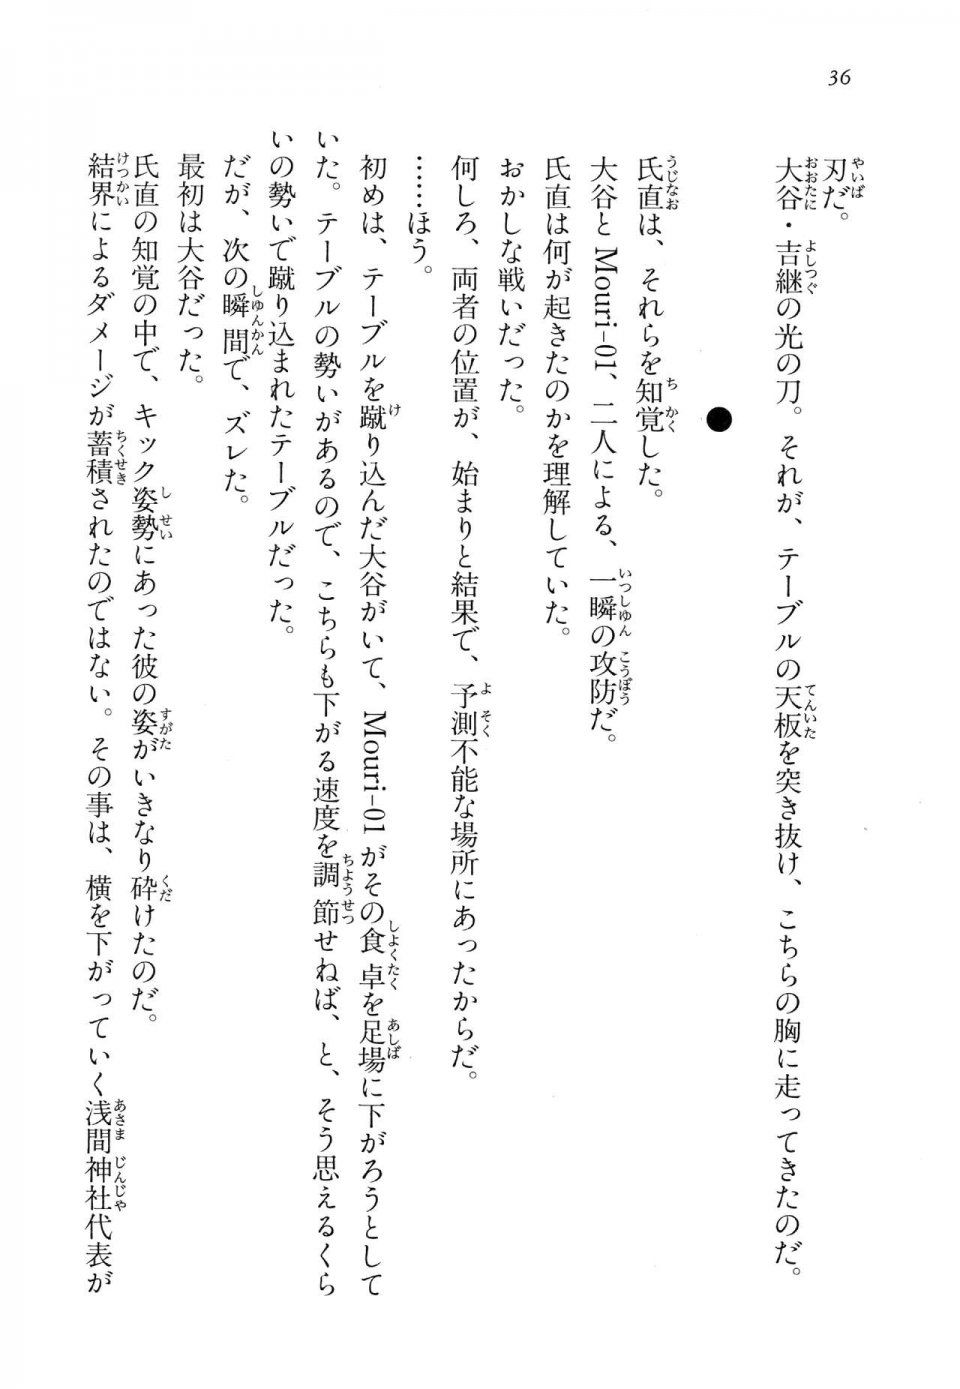 36
刃だ。
大谷・吉継の光の刀。それが、テーブルの天板を突き抜け、こちらの胸に走ってきたのだ。
●
氏直は、それらを知覚した。
大谷とMouri-01、二人による、一瞬の攻防だ。
氏直は何が起きたのかを理解していた。
おかしな戦いだった。
何しろ、両者の位置が、始まりと結果で、予測不能な場所にあったからだ。
……ほう。
初めは、テーブルを蹴り込んだ大谷がいて、Mouri-01がその食卓を足場に下がろうとして
いた。テーブルの勢いがあるので、こちらも下がる速度を調節せねば、と、そう思えるくら
いの勢いで蹴り込まれたテーブルだった。
だが、次の瞬間で、ズレた。
最初は大谷だった。
氏直の知覚の中で、キック姿勢にあった彼の姿がいきなり砕けたのだ。
結界によるダメージが蓄積されたのではない。その事は、横を下がっていく浅間神社代表が